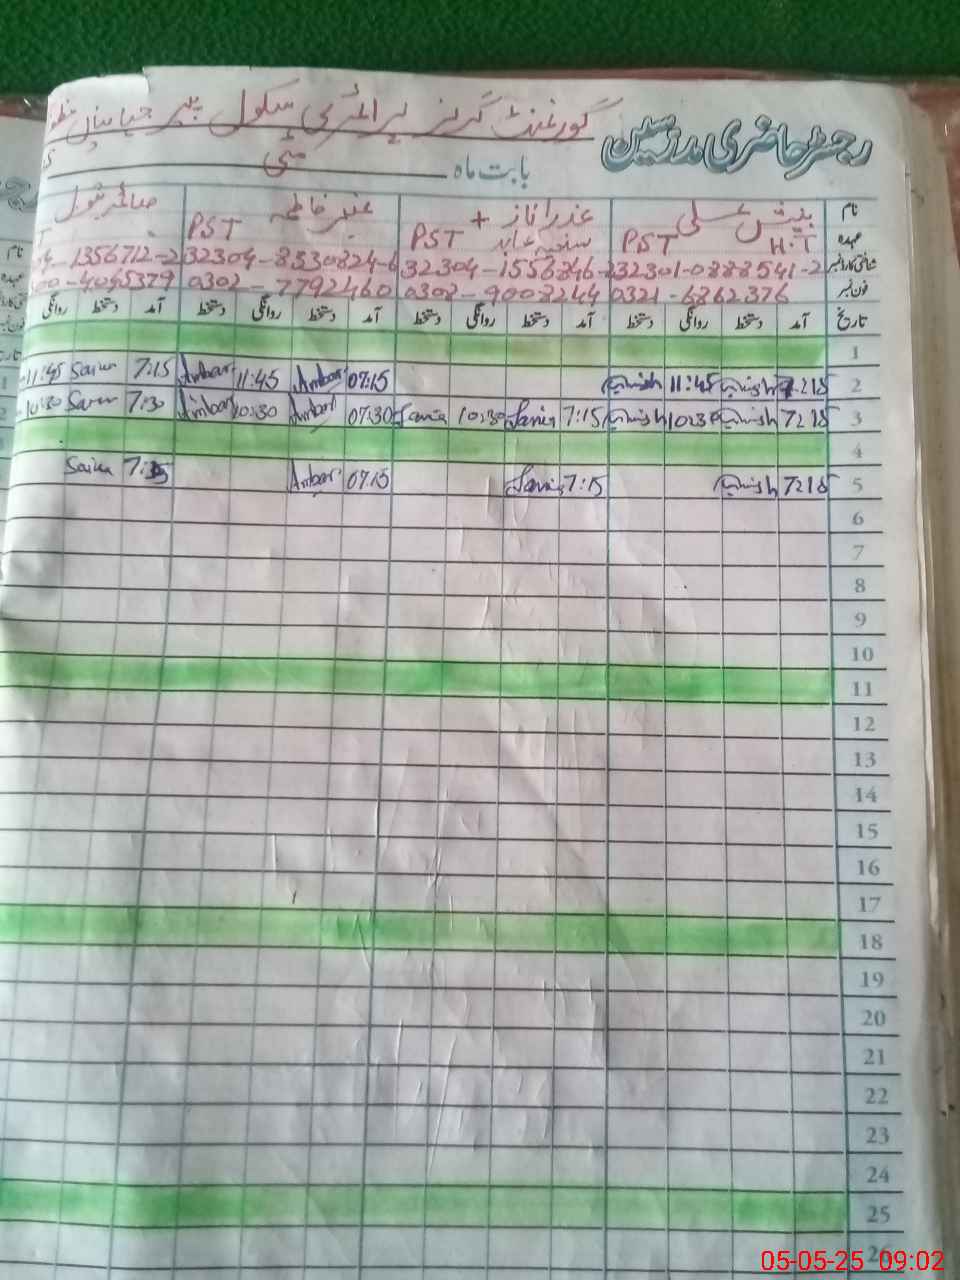 گورنمنٹ گرلز پرائمری سکول پیر جہانیاں
رجسٹر حاضری مدرسین
بابت ماہ مئی
نام بینش علی عذرا ناز + عنبر فاطمہ صائمہ بتول
عہدہ PST H.T PST ثنیہ عابد PST
شناختی کارڈ نمبر 32301-0888541-2 32304-1556846- 32304-8330824-6 1356712-2
فون نمبر 0321-6862376 0308-9008244 0302-7792460 -4045379
تاریخ آمد دستخط روانگی دستخط آمد دستخط روانگی دستخط آمد دستخط روانگی دستخط آمد دستخط روانگی
1
2 7:15 Binish 11:45 Binish 07:15 Ambar 11:45 Ambar 7:15 Saima 11:45
3 7:15 Binish 10:30 Binish 7:15 Sania 10:30 Sania 07:30 Ambar 10:30 Ambar 7:30 Saima 10:30
4
5 7:15 Binish 7:15 Sania 07:15 Ambar 7:15 Saima
6
7
8
9
10
11
12
13
14
15
16
17
18
19
20
21
22
23
24
25
26
05-05-25 09:02